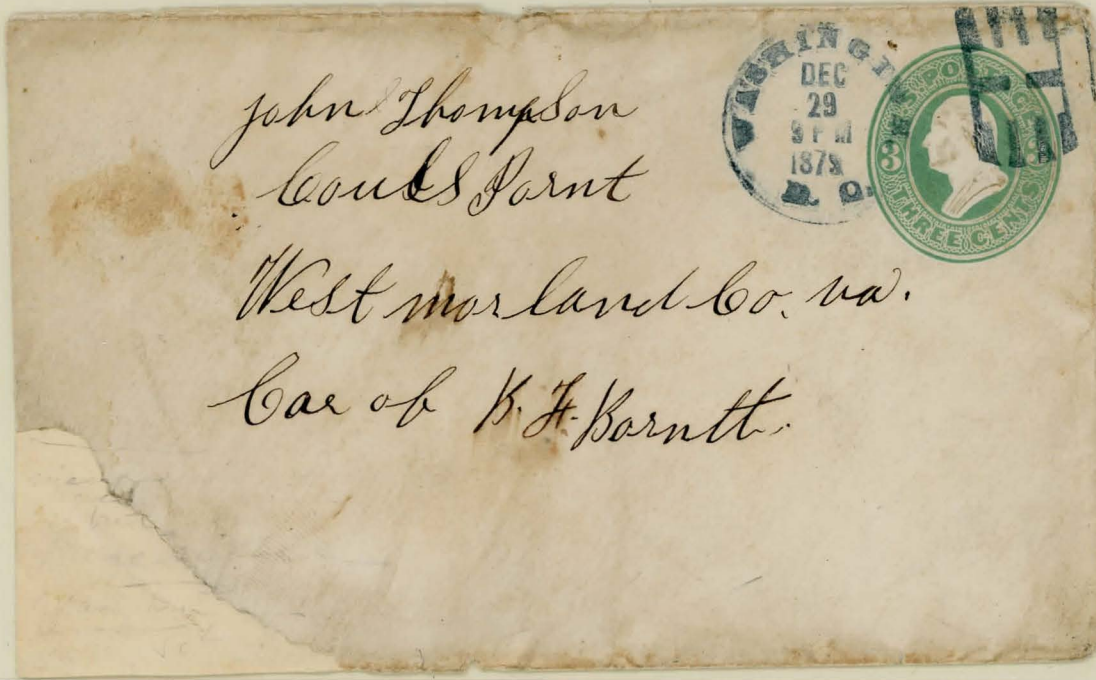 John Thompson
Couls Pornt
West morland Co. va.
Car of B. F. Borntt.
WASHINGT
DEC
29
9 P M
1879
D. C.
U.S. POSTAGE
3
THREE CENTS